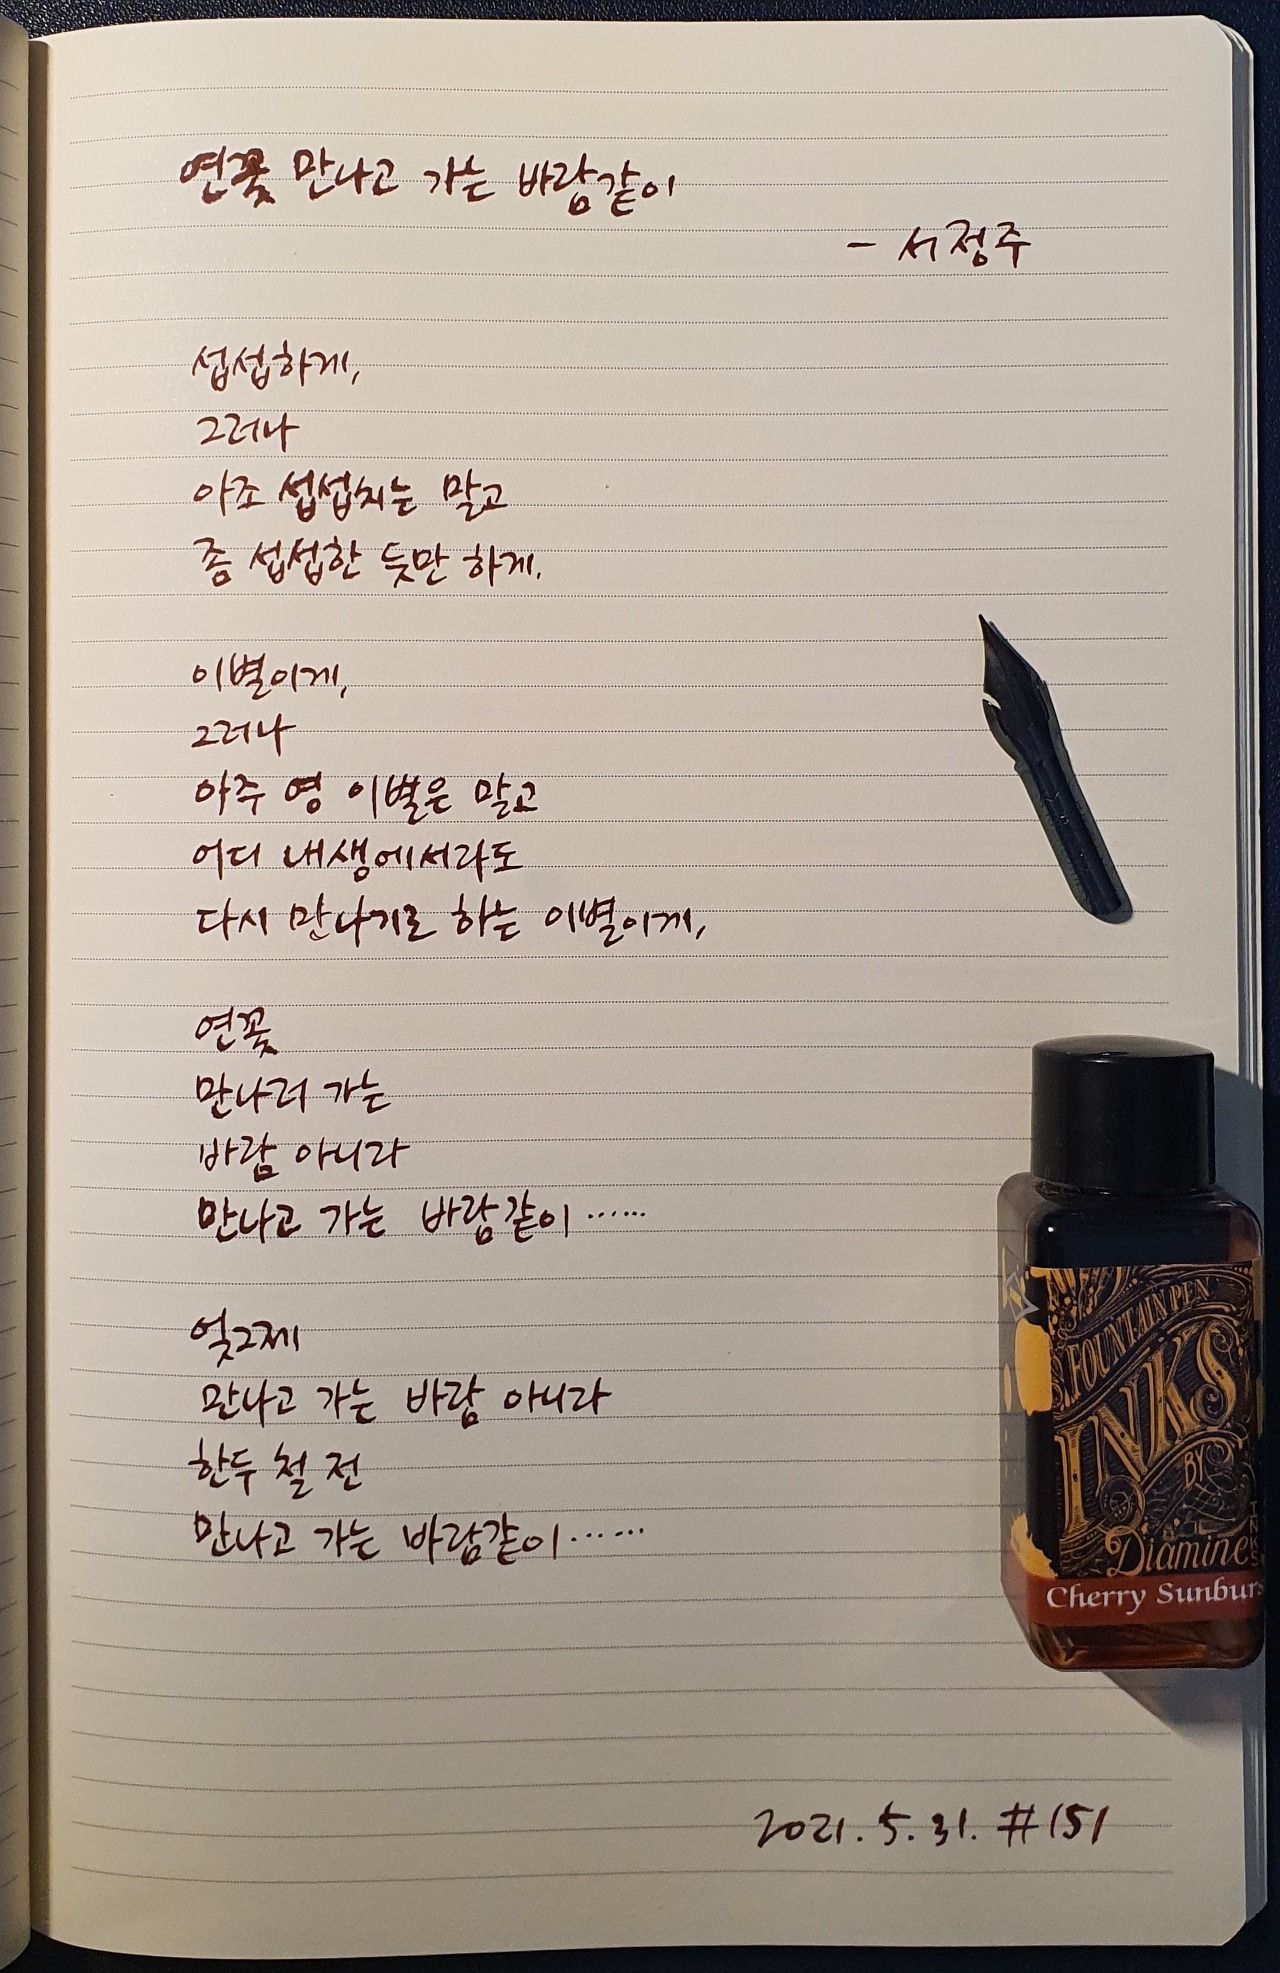 연꽃 만나고 가는 바람같이
- 서정주
섭섭하게,
그러나
아조 섭섭치는 말고
좀 섭섭한 듯만 하게.
이별이게,
그러나
아주 영 이별은 말고
어디 내생에서라도
다시 만나기로 하는 이별이게,
연꽃
만나러 가는
바람 아니라
만나고 가는 바람같이……
엊그제
만나고 가는 바람 아니라
한두 철 전
만나고 가는 바람같이……
FOUNTAIN PEN
INKS
BY
Diamine
Cherry Sunburs
2021. 5. 31. #151